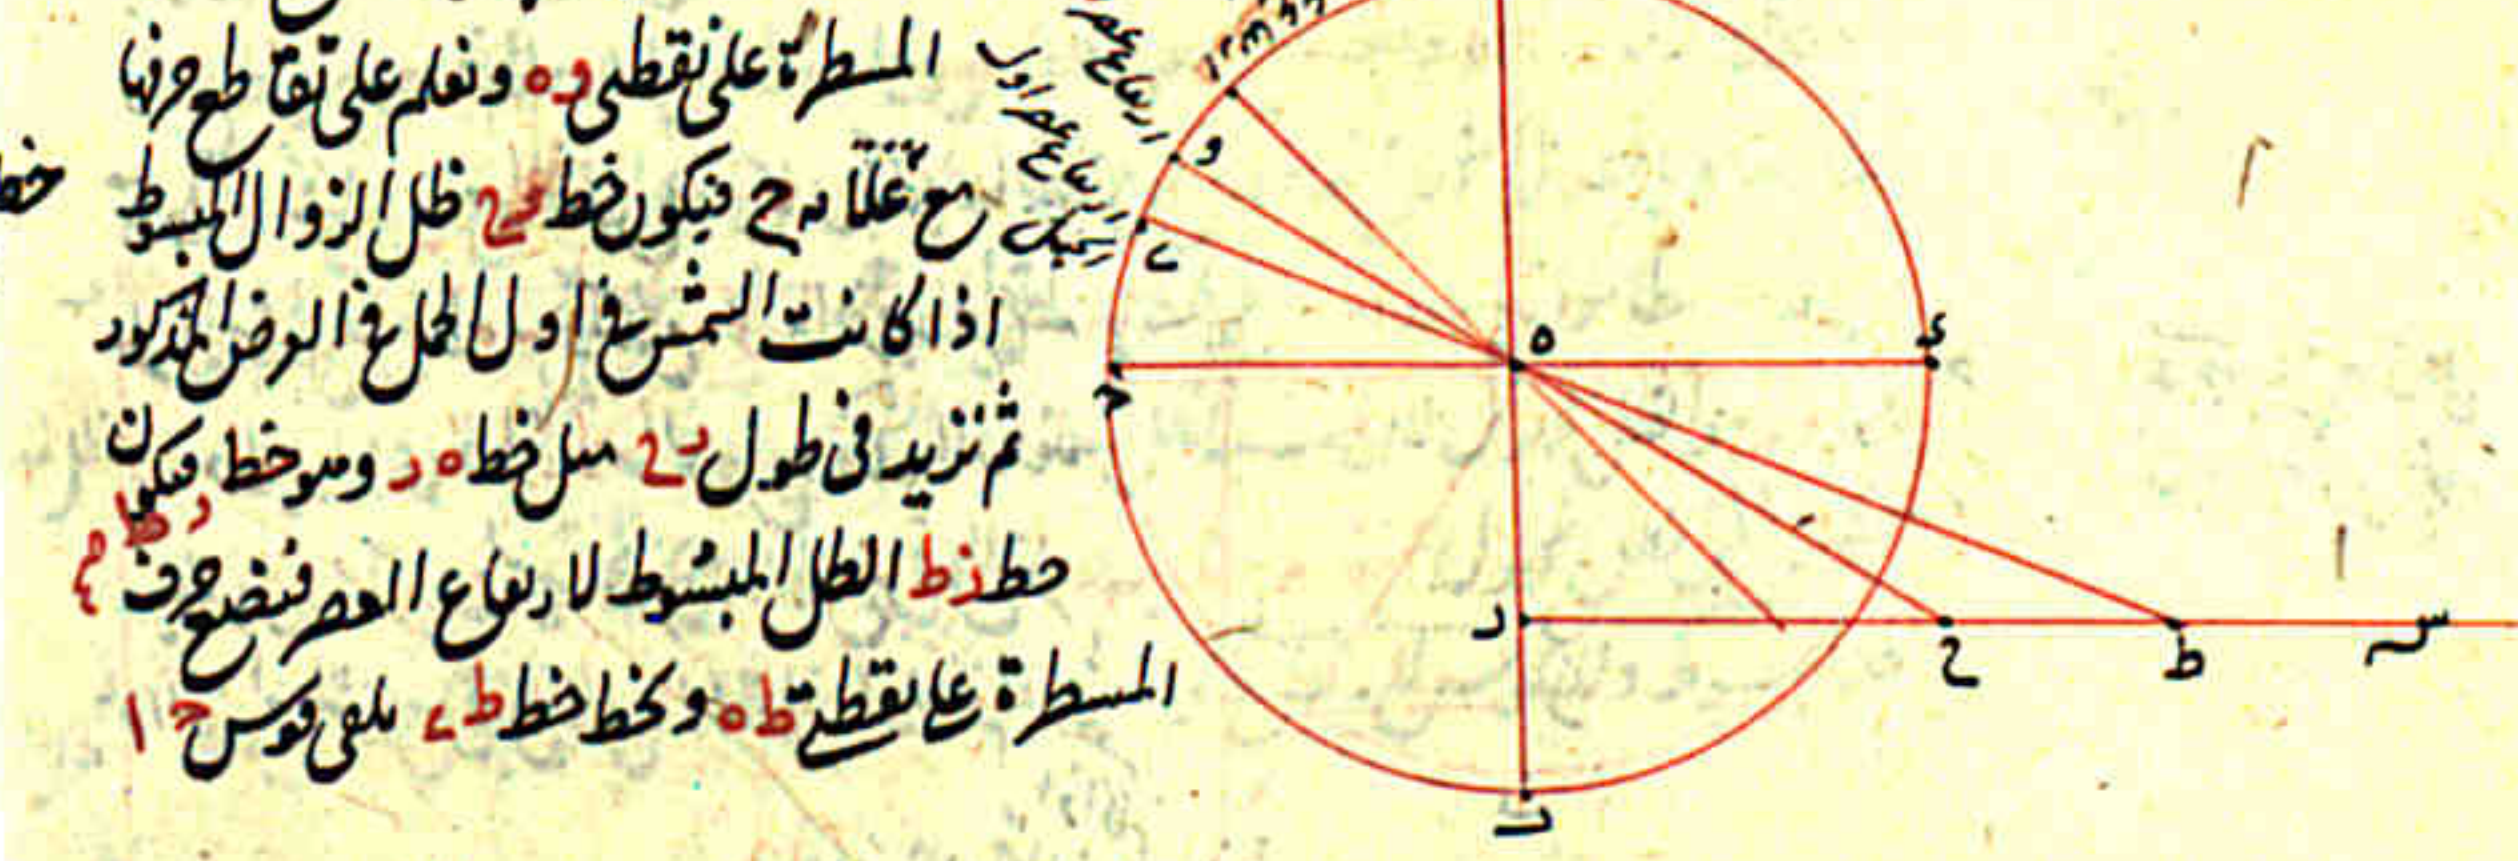 المسطرة على نقطى و ه ونعلم على تقاطع حرفها
مع علامه ح فيكون خط زح ظل الزوال المبسوط
خط
اذا كانت الشمس فى اول الحمل فى العرض المذكور
ثم نزيد فى طول زح مثل خط ه ر وهو خط فيكون
خط زط الظل المبسوط لارتفاع العصر فنضع حرف
المسطرة على نقطتى ط ه ونخط خط ط ى يلقى قوس ح ا
ارتفاع عصر اول
و
ى
ه
ء
ح
ر
ح
ط
س
ب